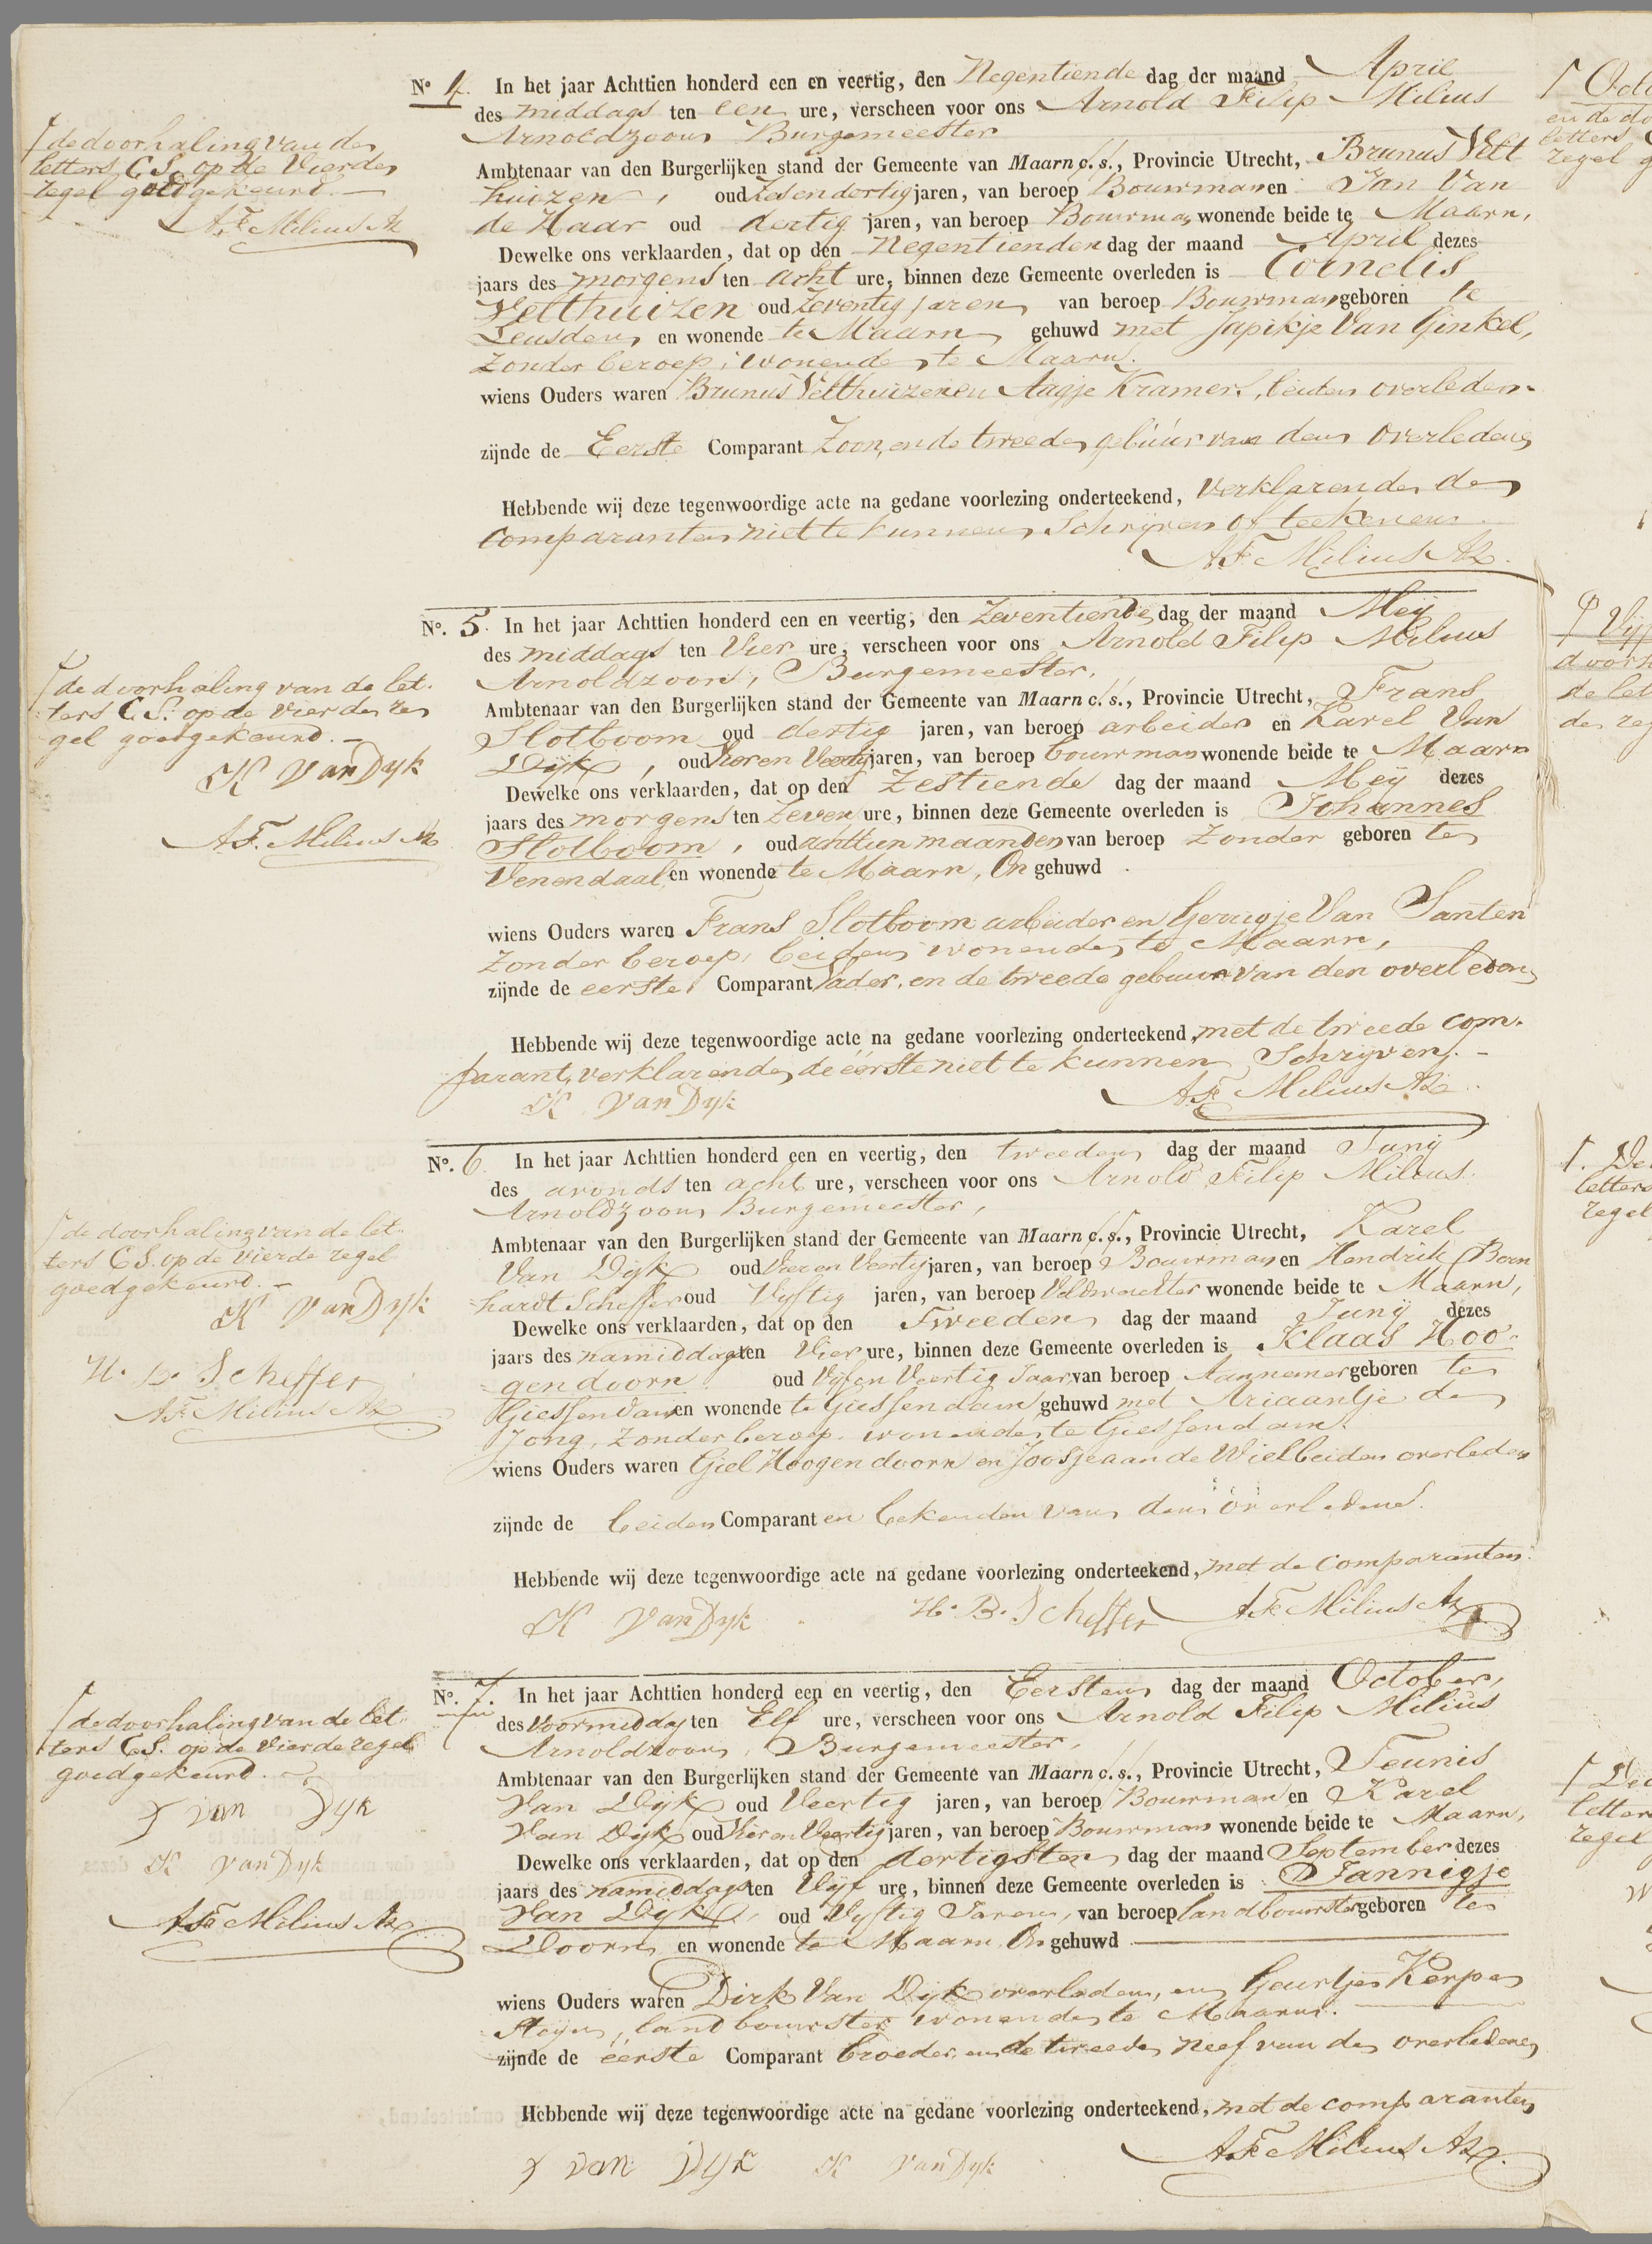 No. 4. In het jaar Achttien honderd een en veertig, den Negentiende dag der maand April
des middags ten een ure, verscheen voor ons Arnold Filip Milius
Arnoldzoon Burgemeester
Ambtenaar van den Burgerlijken stand der Gemeente van Maarn c. s., Provincie Utrecht, Brunus Velt
huizen, oud dertig jaren, van beroep Bouwman en Jan Van
de Haar oud dertig jaren, van beroep Bouwman wonende beide te Maarn,
Dewelke ons verklaarden, dat op den Negentienden dag der maand April dezes
jaars des morgens ten acht ure, binnen deze Gemeente overleden is Cornelis
Velthuizen oud Zeventig jaren van beroep Bouwman geboren te
Leusden en wonende te Maarn gehuwd met Japikje Van Ginkel,
Zonder beroep, wonende te Maarn.
wiens Ouders waren Brunus Velthuizen en Aagje Kramer, beiden overleden
zijnde de Eerste Comparant Zoon, en de tweede gebuur van den Overledene
Hebbende wij deze tegenwoordige acte na gedane voorlezing onderteekend, Verklarende de
Comparanten niet te kunnen Schrijven of teekenen
A. F. Milius Az.
de doorhaling van de
letters C. S. op de Vierde
regel goedgekeurd.
A. F. Milius Az
No. 5. In het jaar Achttien honderd een en veertig, den Zeventiende dag der maand Meij
des middags ten Vier ure, verscheen voor ons Arnold Filip Milius
Arnoldzoon, Burgemeester,
Ambtenaar van den Burgerlijken stand der Gemeente van Maarn c. s., Provincie Utrecht, Frans
Slotboom oud dertig jaren, van beroep arbeider en Karel Van
Dijk, oud Vier en Veertig jaren, van beroep bouwman wonende beide te Maarn
Dewelke ons verklaarden, dat op den Zestiende dag der maand Meij dezes
jaars des morgens ten Zeven ure, binnen deze Gemeente overleden is Johannes
Slotboom, oud achttien maanden van beroep Zonder geboren te
Venendaal en wonende te Maarn, On gehuwd
wiens Ouders waren Frans Slotboom arbeider en Gerrigje Van Santen
Zonder beroep, beiden wonende te Maarn,
zijnde de eerste Comparant Vader, en de tweede gebuur van den overleden
Hebbende wij deze tegenwoordige acte na gedane voorlezing onderteekend, met de tweede Com-
parant, verklarende de eerste niet te kunnen Schrijven.
K Van Dyk A. F. Milius Az
de doorhaling van de let-
ters C. S. op de vierde re
gel goedgekeurd.
K Van Dyk
A. F. Milius Az
No. 6. In het jaar Achttien honderd een en veertig, den tweeden dag der maand Junij
des avonds ten acht ure, verscheen voor ons Arnold Filip Milius.
Arnoldzoon Burgemeester,
Ambtenaar van den Burgerlijken stand der Gemeente van Maarn c. s., Provincie Utrecht, Karel
Van Dijk oud Vier en Veertig jaren, van beroep Bouwman en Hendrik Bern
hardt Scheffer oud Vijftig jaren, van beroep Veldwachter wonende beide te Maarn,
Dewelke ons verklaarden, dat op den Tweeden dag der maand Junij dezes
jaars des namiddags ten Vier ure, binnen deze Gemeente overleden is Klaas Hoo-
gendoorn oud Vijf en Veertig Jaar van beroep Aannemer geboren te
Giessendam en wonende te Giessendam gehuwd met Ariaantje de
Jong, Zonder beroep, wonende te Giessendam.
wiens Ouders waren Giel Hoogendoorn en Joosje aan de Wiel beiden overleden
zijnde de beiden Comparant en bekenden van den overledene.
Hebbende wij deze tegenwoordige acte na gedane voorlezing onderteekend, met de Comparanten.
K Van Dyk H. B. Scheffer A. F. Milius Az
de doorhaling van de let-
ters C. S. op de vierde regel
goedgekeurd.
K Van Dyk
H. B. Scheffer
A. F. Milius Az
No. 7. In het jaar Achttien honderd een en veertig, den Eersten dag der maand October,
des voormiddag ten Elf ure, verscheen voor ons Arnold Filip Milius
Arnoldzoon, Burgemeester,
Ambtenaar van den Burgerlijken stand der Gemeente van Maarn c. s., Provincie Utrecht, Teunis
Van Dijk oud Veertig jaren, van beroep Bouwman en Karel
Van Dijk oud Vier en Veertig jaren, van beroep Bouwman wonende beide te Maarn,
Dewelke ons verklaarden, dat op den dertigsten dag der maand September dezes
jaars des namiddags ten Vijf ure, binnen deze Gemeente overleden is Jannigje
Van Dijk, oud Vijftig Jaren, van beroep landbouwster geboren te
Doorn en wonende te Maarn On gehuwd
wiens Ouders waren Dirk Van Dijk overleden, en Geurtje Kerpe
landbouwster wonende te Maarn.
zijnde de eerste Comparant broeder, en de tweede neef van de overledene
Hebbende wij deze tegenwoordige acte na gedane voorlezing onderteekend, met de comparanten
T van Dyk K Van Dyk A. F. Milius Az.
de doorhaling van de let-
ters C. S. op de Vierde regel
goedgekeurd.
T van Dyk
K Van Dyk
A. F. Milius Az